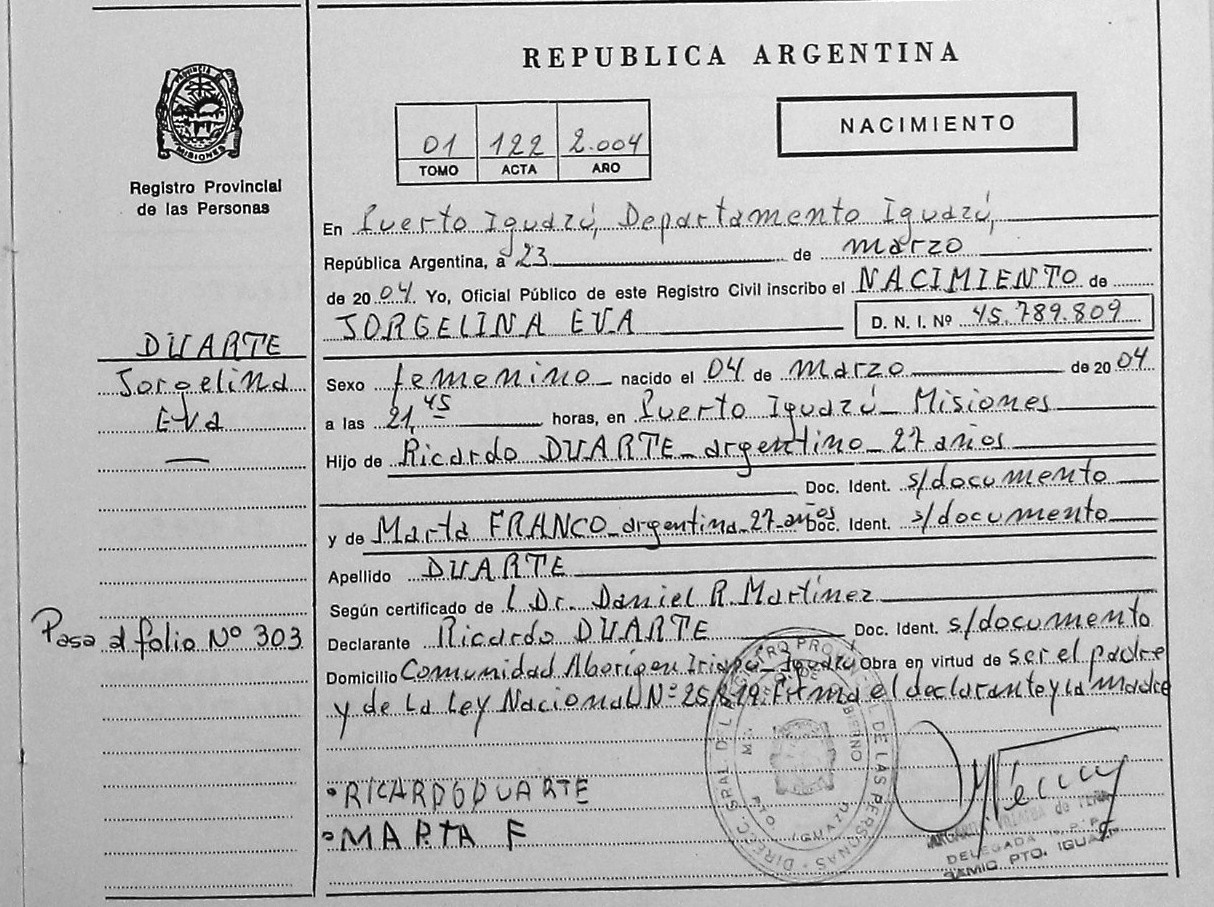 PROVINCIA DE
MISIONES
Registro Provincial
de las Personas
DUARTE
Jorgelina
Eva
Pasa al folio Nº 303
REPUBLICA ARGENTINA
01 122 2.004
TOMO ACTA AÑO
NACIMIENTO
En Puerto Iguazú, Departamento Iguazú,
República Argentina, a 23 de marzo
de 2004 Yo, Oficial Público de este Registro Civil inscribo el NACIMIENTO de
JORGELINA EVA D. N. I. Nº 45.789.809
Sexo femenino nacido el 04 de marzo de 2004
a las 21,45 horas, en Puerto Iguazú - Misiones
Hijo de Ricardo DUARTE - argentino - 27 años
Doc. Ident. s/documento
y de Marta FRANCO - argentina - 27 años Doc. Ident. s/documento
Apellido DUARTE
Según certificado de l Dr. Daniel R. Martínez
Declarante Ricardo DUARTE Doc. Ident. s/documento
Domicilio Comunidad Aborigen Iriapú - Iguazú Obra en virtud de ser el padre
y de La Ley Nacional Nº 25.819. Firma el declarante y la madre
RICARDO DUARTE
MARTA F
DIREC. GRAL. DEL REGISTRO PROVINCIAL DE LAS PERSONAS
PTO. IGUAZU
DELEGADA R. P. P.
SAMIC PTO. IGUAZU